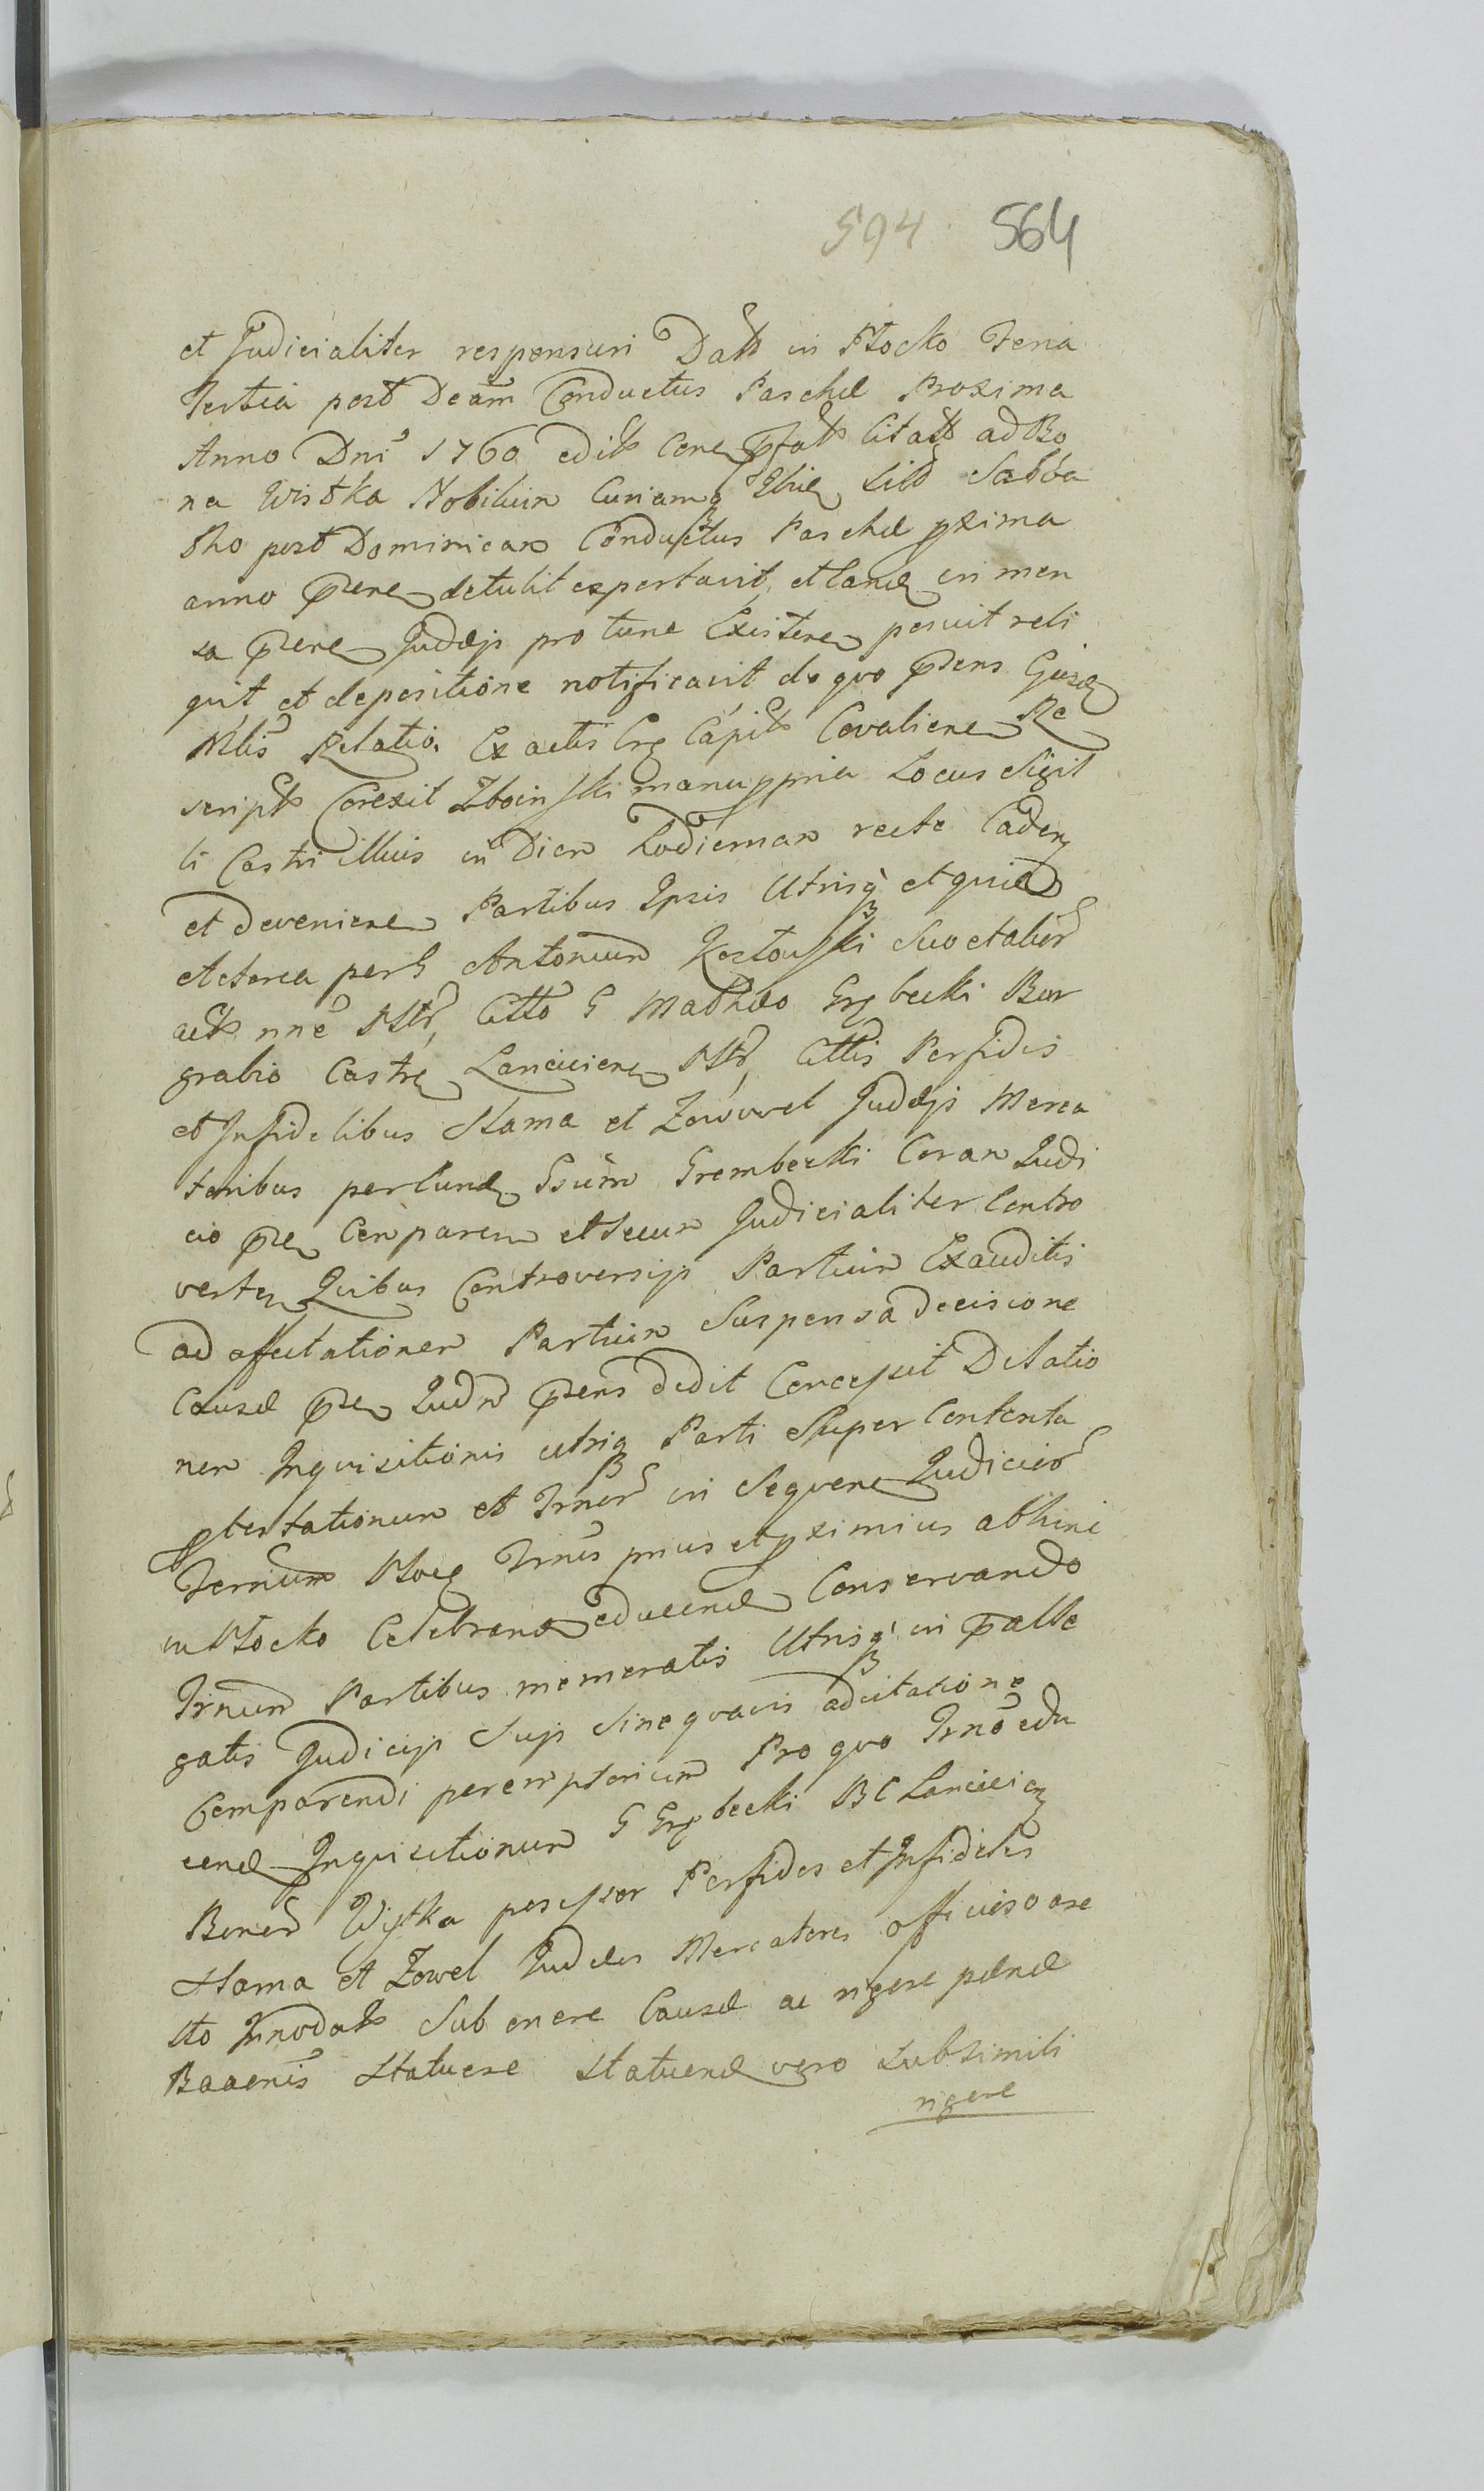 594 564
et Judicialiter responsuri Datt in Płocko Feria
Tertia post Dcam Conductus Paschæ Proxima
Anno Dni 1760 edit Cone Citatt ad Bo
na Wistka Nobilium Curiamq Ibid Sitt Sabba
tho post Dominicam Conductus Paschæ pxima
anno pnte detulit exportavit, et eand in men
sa Judæjs pro tunc Existen posuit reli
quit et depositione notificavit de quo pnens
Mlis Relatio Ex actis Crg Capit Covaliene Re
script Corexit Zboinski manu ppria Locus Sigil
li Castri illius in Diem hodiernam recte Caden
et Devenien Partibus Ipsis Utrisq et quid
actorea per G Antonium Kozłowski Suo et alior
act nne Mtr, Citto G Mathæo Grębecki Bur
grabio Castr Lanciciene Mtr, Cittis Perfidis
et Infidelibus Hama et Zowwel Judæjs Merca
toribus per eund Gsum Grembecki Coram Judi
cio Comparen et secum Judicialiter Contro
verten Quibus Controversijs Partium Exauditis
ad affectationem Partium Suspensa Decisione
Causæ Judm pnens dedit Concessit Dilatio
nem Inquisitionis utriq Parti Super Contenta
ptestationum et Trnor in Sequen Judicior
Ternum Płoc Trnis prius et pximius abhinc
in Płocko Celebrand educend Conservando
Trnum Partibus memoratis Utrisq in
gatis Judicijs Sujs Sine quavis adcitatione
Comparendi peremptorium Pro quo Trno edu
cend Inquisitionum G Grębecki BC Lancicien
Bonor Wystka possessor Perfidos et Infideles
Hama et Zowel Judæos Mercatores officioso are
sto Innodatt Sub onere Causæ ac rigore pænæ
Baaenis Statuere Statuend vero sub simili
rigore